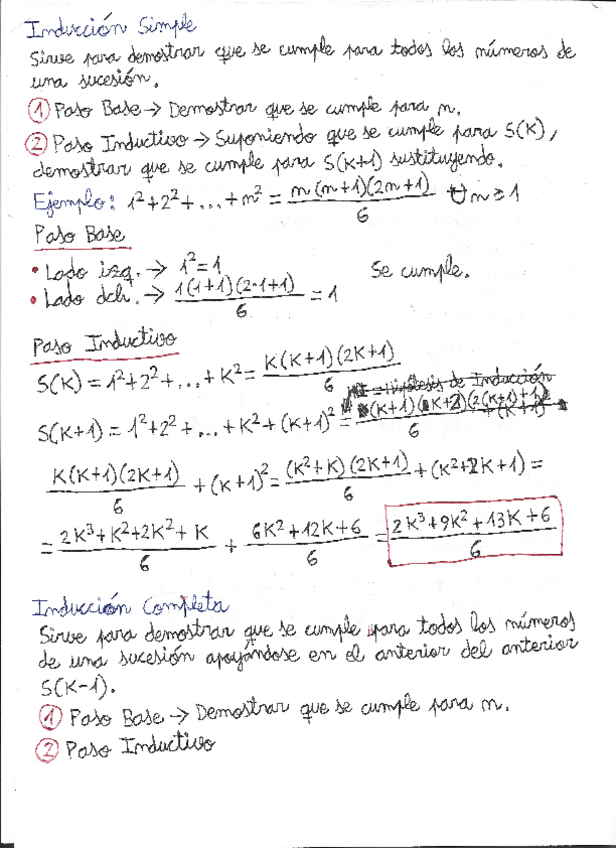 Inducción Simple
Sirve para demostrar que se cumple para todos los números de
una sucesión.
① Paso Base → Demostrar que se cumple para n.
② Paso Inductivo → Suponiendo que se cumple para S(K),
demostrar que se cumple para S(K+1) sustituyendo.
Ejemplo: 1²+2²+...+n² = n(n+1)(2n+1)/6 ∀n≥1
Paso Base
• Lado izq. → 1²=1 Se cumple.
• Lado dch. → 1(1+1)(2·1+1)/6 = 1
Paso Inductivo
S(K) = 1²+2²+...+K² = K(K+1)(2K+1)/6
S(K+1) = 1²+2²+...+K²+(K+1)² = (K+1)(K+2)(2(K+1)+1)/6
K(K+1)(2K+1)/6 + (K+1)² = (K²+K)(2K+1)/6 + (K²+2K+1) =
= 2K³+K²+2K²+K/6 + 6K²+12K+6/6 = 2K³+9K²+13K+6/6
Inducción Completa
Sirve para demostrar que se cumple para todos los números
de una sucesión apoyándose en el anterior del anterior
S(K-1).
① Paso Base → Demostrar que se cumple para n.
② Paso Inductivo